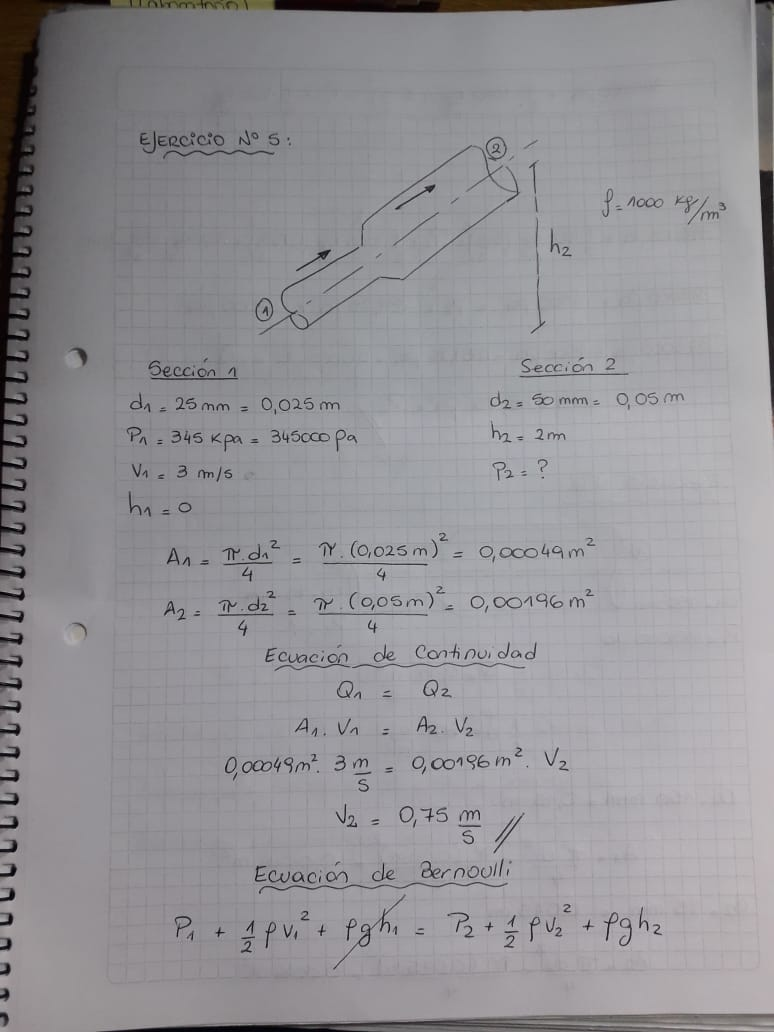 EJERCICIO Nº 5:
②
ρ = 1000 kg/m³
h₂
①
Sección 1
Sección 2
d₁ = 25 mm = 0,025 m
d₂ = 50 mm = 0,05 m
P₁ = 345 Kpa = 345000 pa
h₂ = 2m
V₁ = 3 m/s
P₂ = ?
h₁ = 0
A₁ = π.d₁²/4 = π.(0,025m)²/4 = 0,00049 m²
A₂ = π.d₂²/4 = π.(0,05m)²/4 = 0,00196 m²
Ecuación de Continuidad
Q₁ = Q₂
A₁. V₁ = A₂. V₂
0,00049m². 3 m/s = 0,00196 m². V₂
V₂ = 0,75 m/s //
Ecuación de Bernoulli
P₁ + 1/2 ρ V₁² + ρgh₁ = P₂ + 1/2 ρ V₂² + ρgh₂